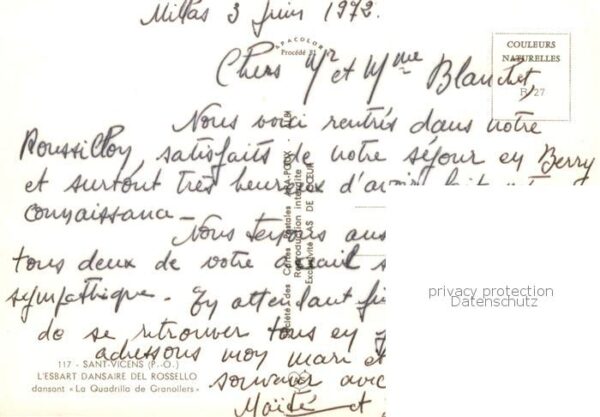 Millas 3 Juin 1972.
SPACOLOR
Procédé 81
COULEURS
NATURELLES
R 27
Chers Mr et Mme Blanchet,
Nous voici rentrés dans notre
Roussillon, satisfaits de notre séjour en Berry
et surtout très heureux d'avoir fait
connaissance -
Nous tenons aus
tous deux de votre accueil s
sympathique. En attendant
de se retrouver tous en
adressons mon mari et
souvenir avec
Maïté et
Société des Cartes Postales
Reproduction interdite
Exclusivité
privacy protection
Datenschutz
117 - SANT-VICENS (P.-O.)
L'ESBART DANSAIRE DEL ROSSELLO
dansant « La Quadrilla de Granollers »